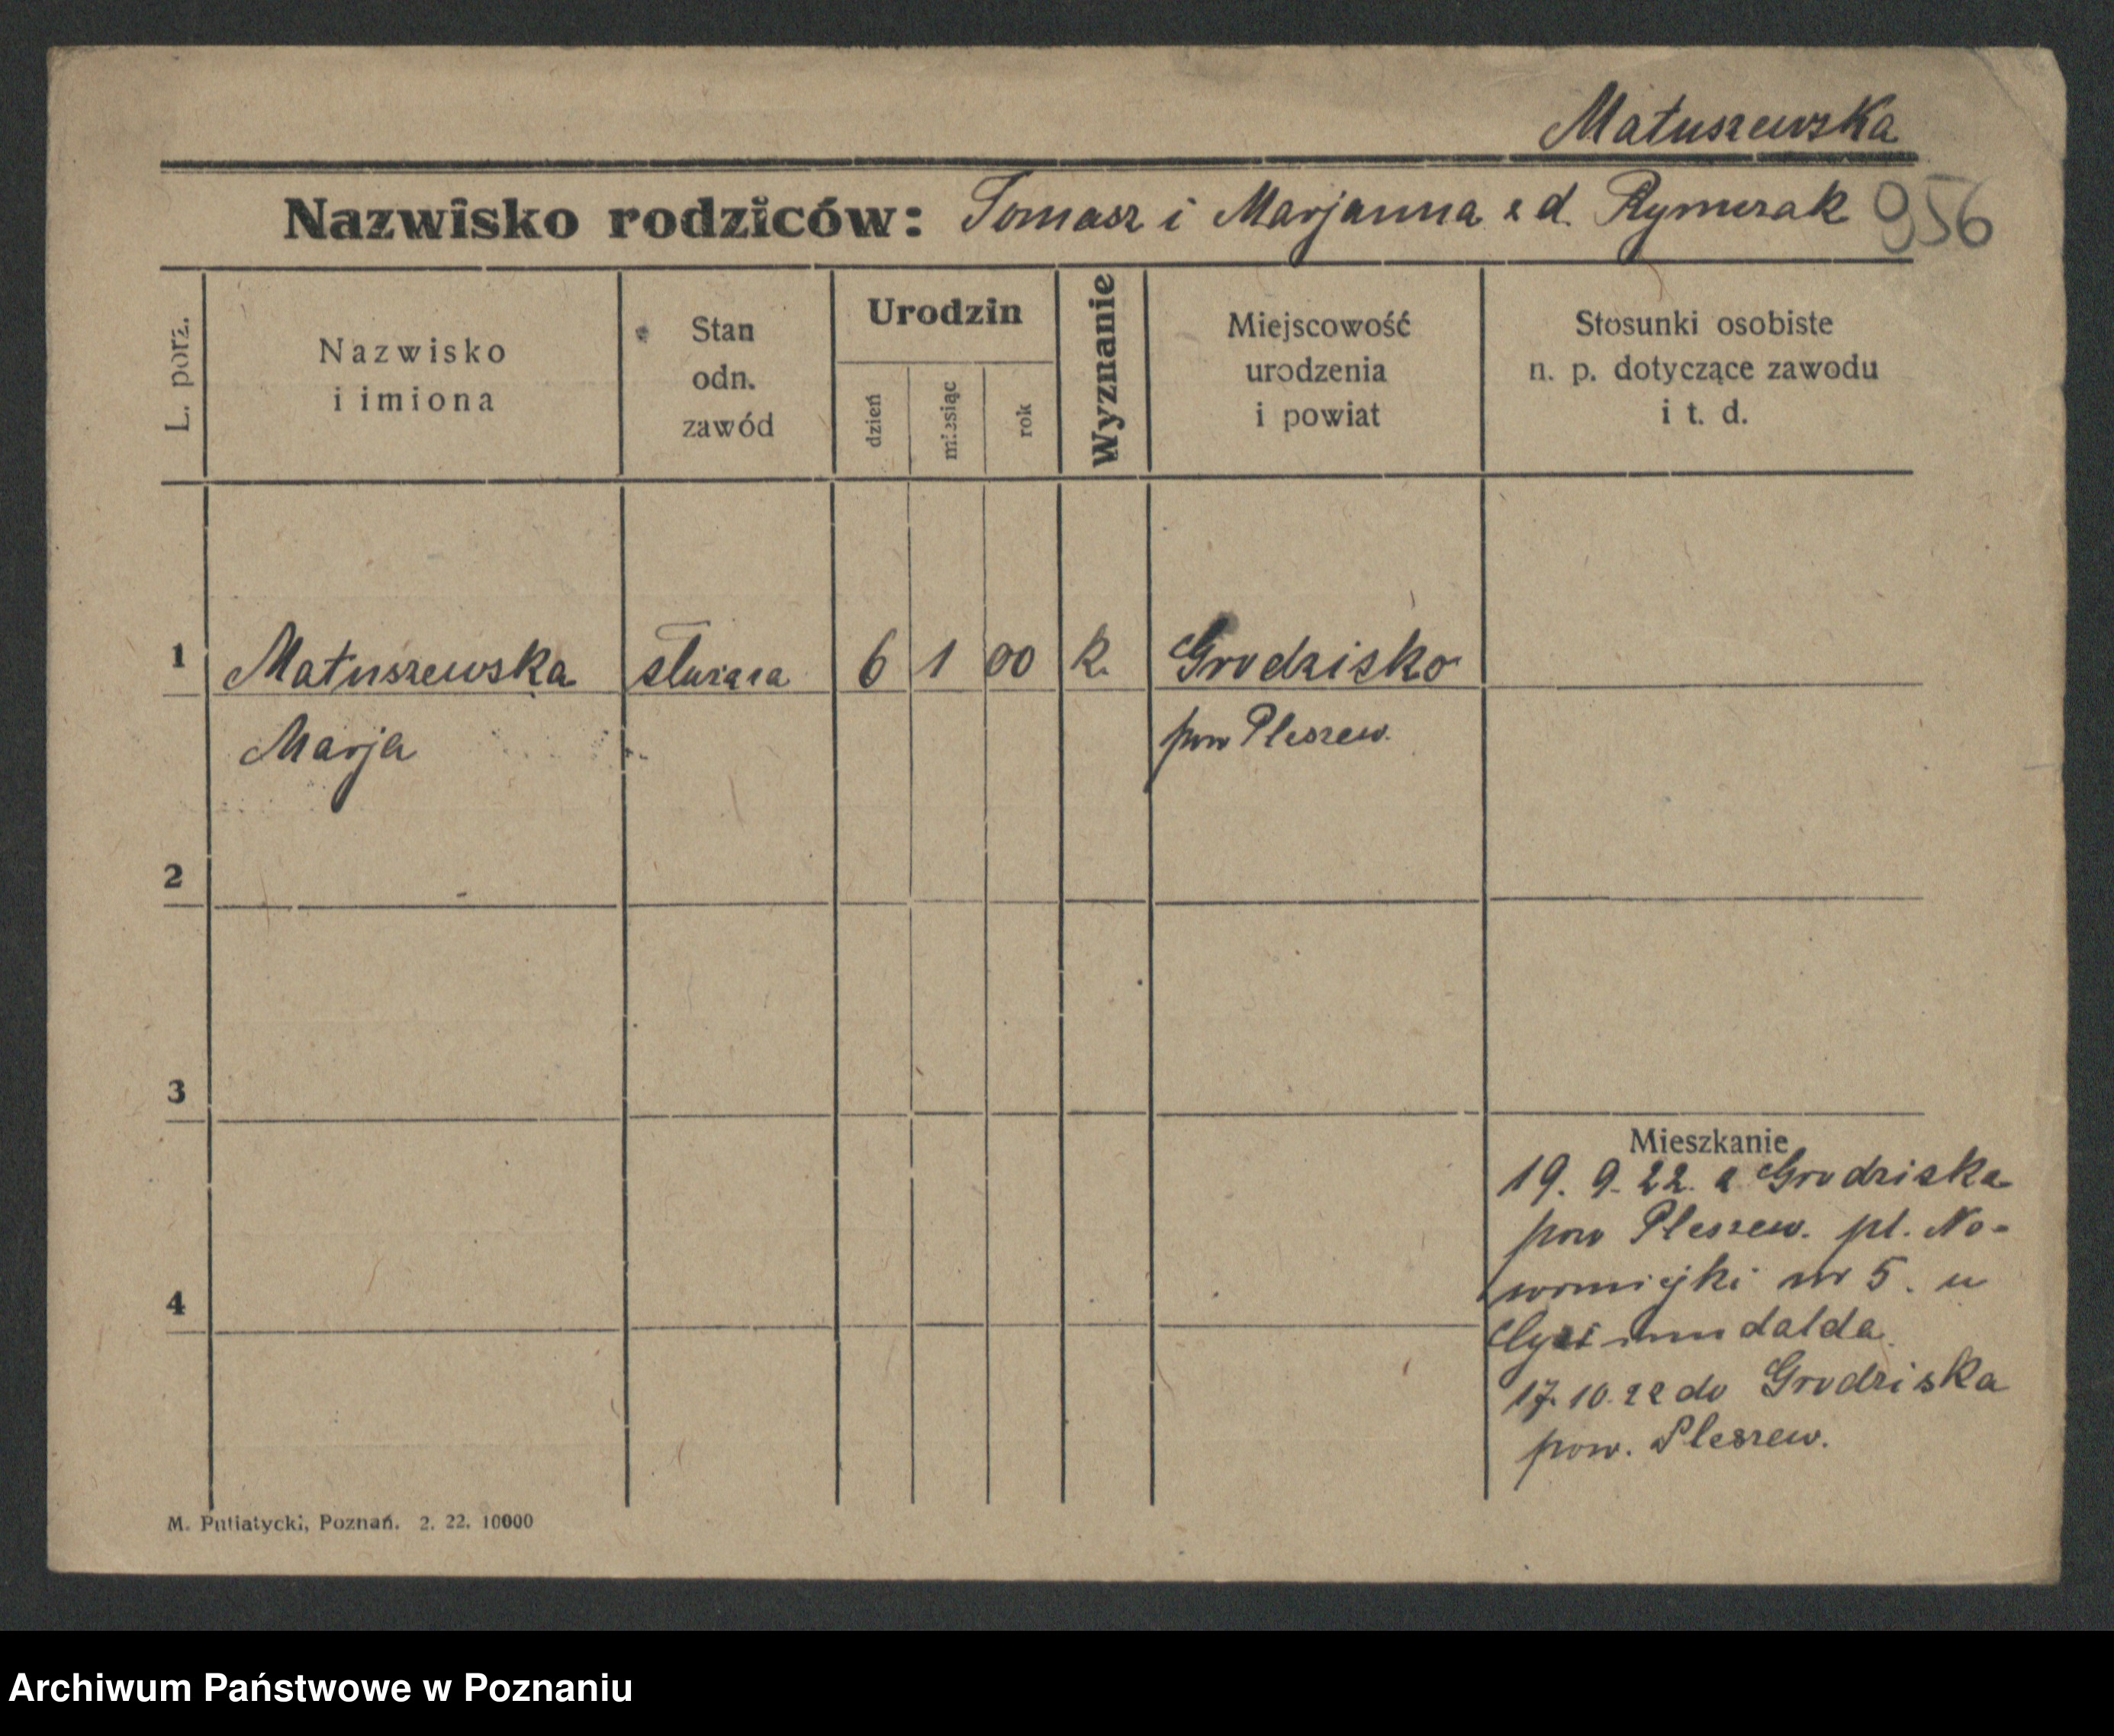 Matuszewska
Nazwisko rodziców: Tomasz i Marjanna z d. 956
L. porz.
Nazwisko
i imiona
Stan
odn.
zawód
Urodzin
dzień
miesiąc
rok
Wyznanie
Miejscowość
urodzenia
i powiat
Stosunki osobiste
n. p. dotyczące zawodu
i t. d.
1 Matuszewska służąca 6 1 00 k. Grodzisko
Marja pow Pleszew.
2
3
4
Mieszkanie
19. 9. 22. z Grodziska
pow Pleszew. pl. No-
womiejki nr 5. u
17. 10. 22 do Grodziska
pow. Pleszew.
M. Putiatycki, Poznań. 2. 22. 10000
Archiwum Państwowe w Poznaniu